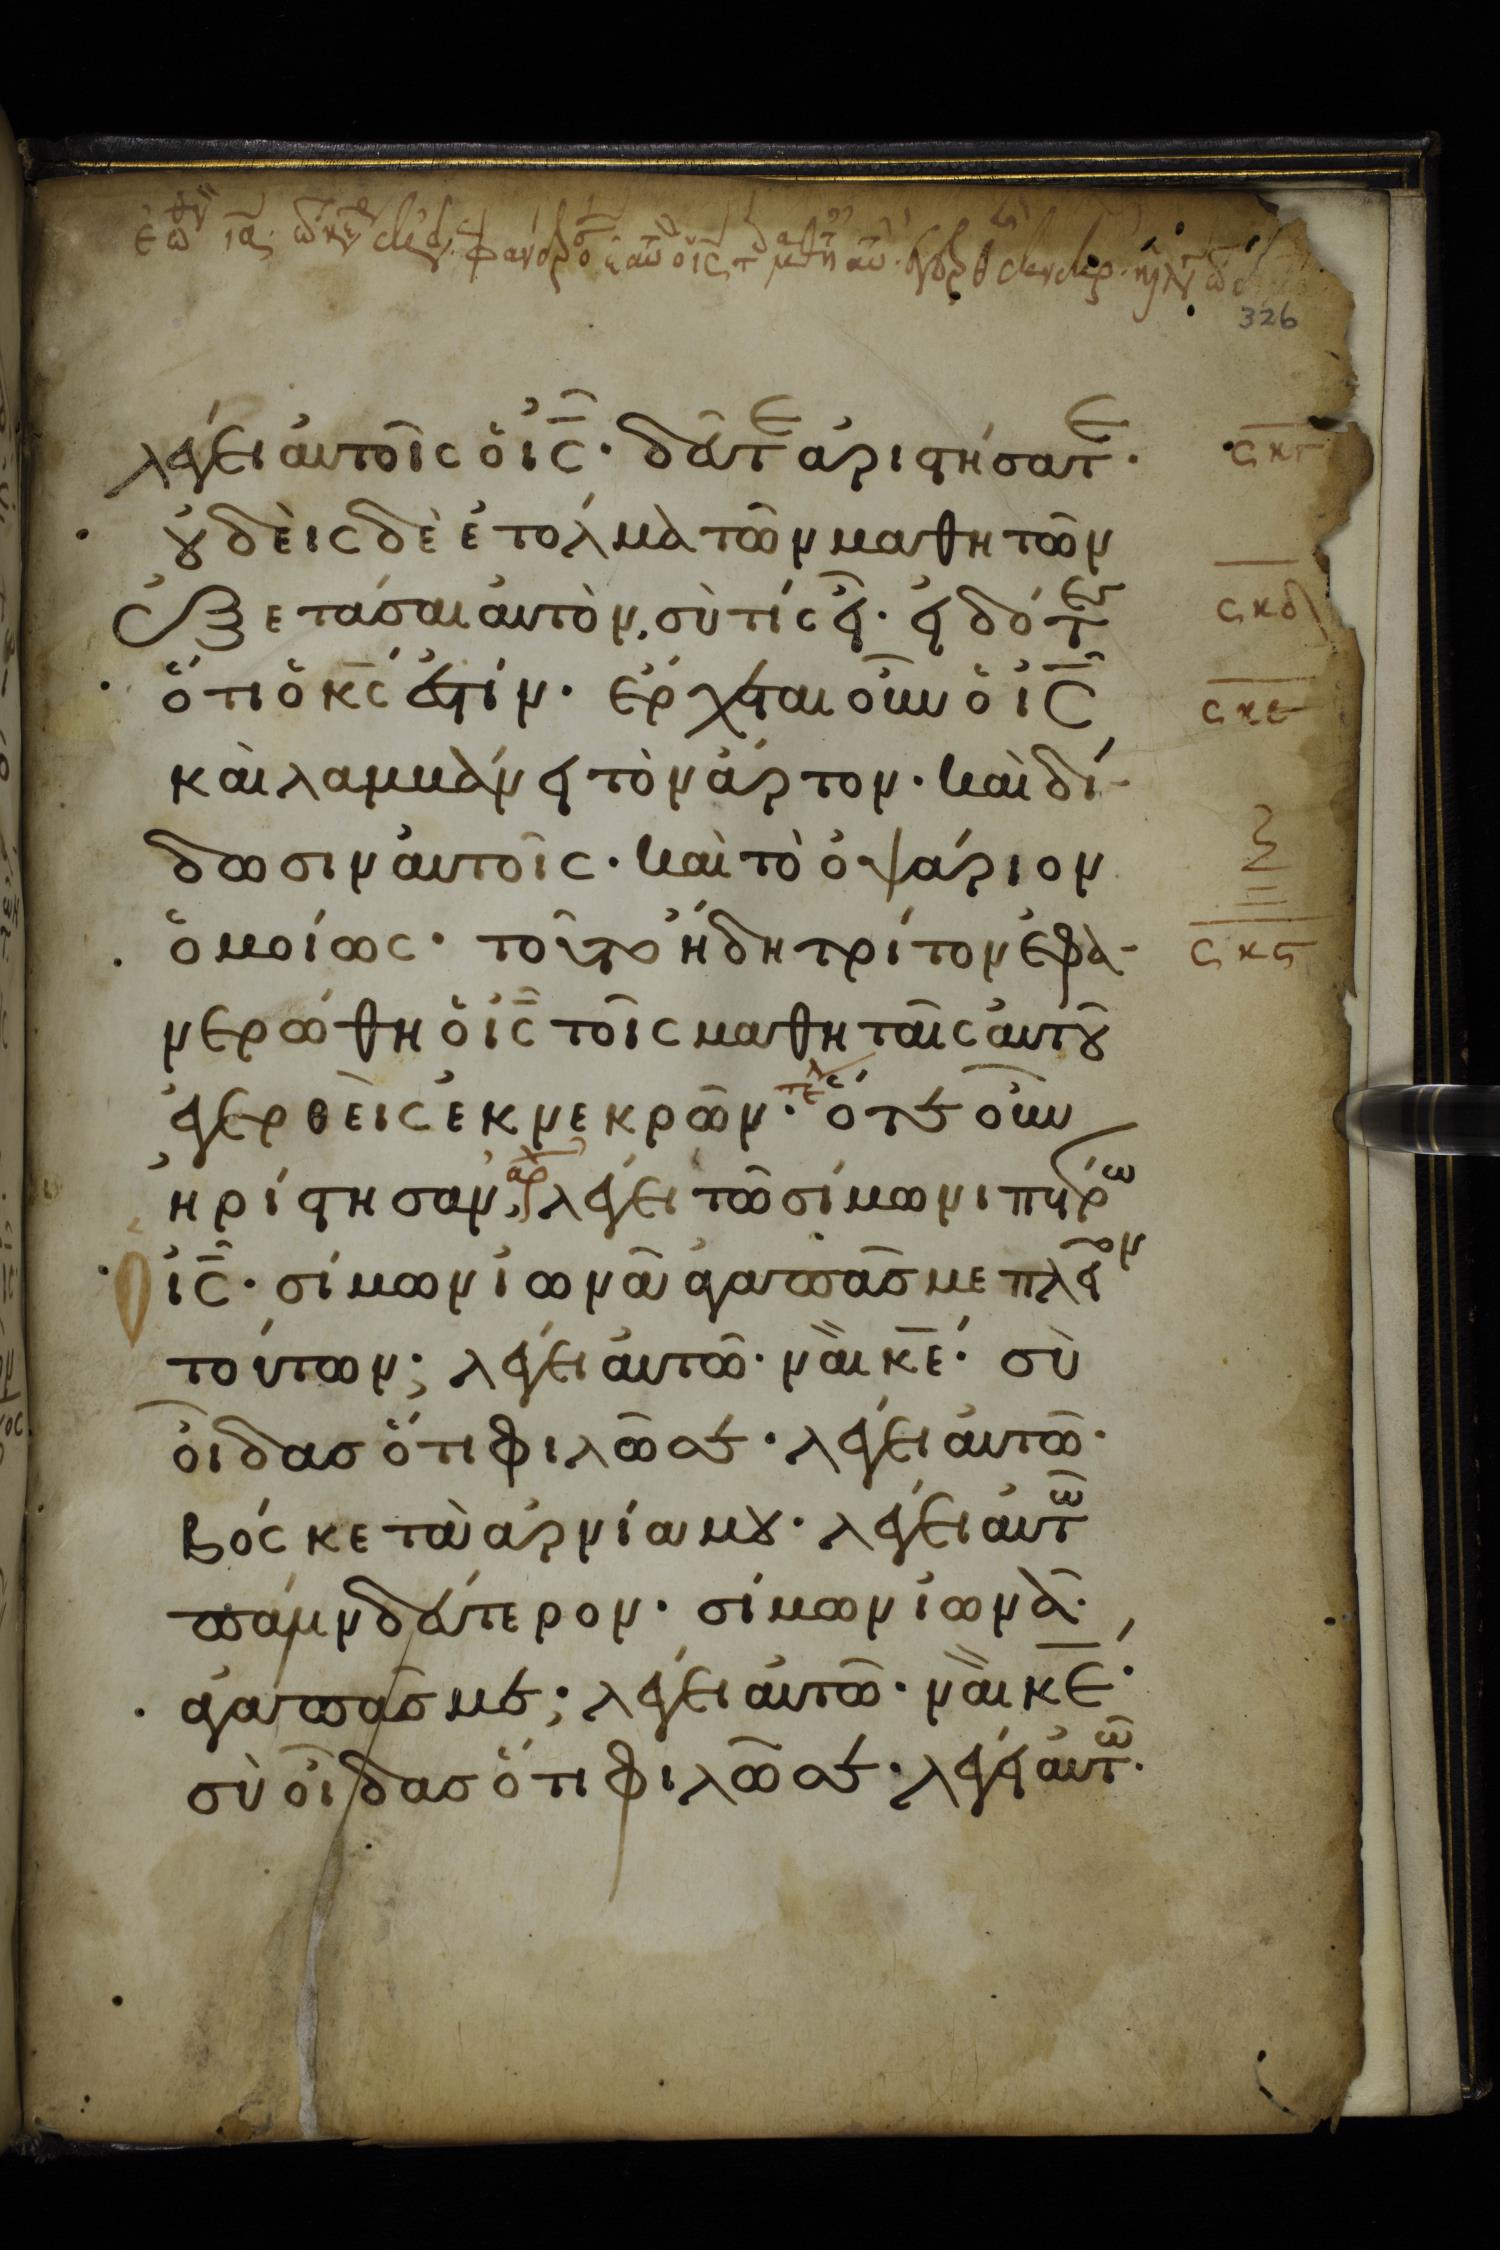 326
λέγει αὐτοῖς ὁ ι̅ς̅· δεῦτε ἀριστήσατε·
οὐδεὶς δὲ ἐτόλμα τῶν μαθητῶν
ἐξετάσαι αὐτὸν, σὺ τίς εἶ· εἰδότες
ὅτι ὁ κ̅ς̅ ἐστίν· ἔρχεται οὖν ὁ ι̅ς̅
καὶ λαμβάνει τὸν ἄρτον· καὶ δί-
δωσιν αὐτοῖς· καὶ τὸ ὀψάριον
ὁμοίως· τοῦτο ἤδη τρίτον ἐφα-
νερώθη ὁ ι̅ς̅ τοῖς μαθηταῖς αὐτοῦ
ἐγερθεὶς ἐκ νεκρῶν· τελ ὅτε οὖν
ἠρίστησαν, αρχ λέγει τῶ σίμωνι πέτρω
ὁ ι̅ς̅· σίμων ἰωνᾶ ἀγαπᾶσ με πλεῖον
τούτων; λέγει αὐτῶ· ναὶ κ̅ε̅· σὺ
οἶδασ ὅτι φιλῶ σε· λέγει αὐτῶ·
βόσκε τὰ ἀρνία μου· λέγει αὐτῶ
πάλιν δεύτερον· σίμων ἰωνᾶ·
ἀγαπᾶσ με; λέγει αὐτῶ· ναὶ κ̅ε̅·
σὺ οἶδασ ὅτι φιλῶ σε· λέγει αὐτῶ·
ςκγ
ςκδ
ςκε
ςκς